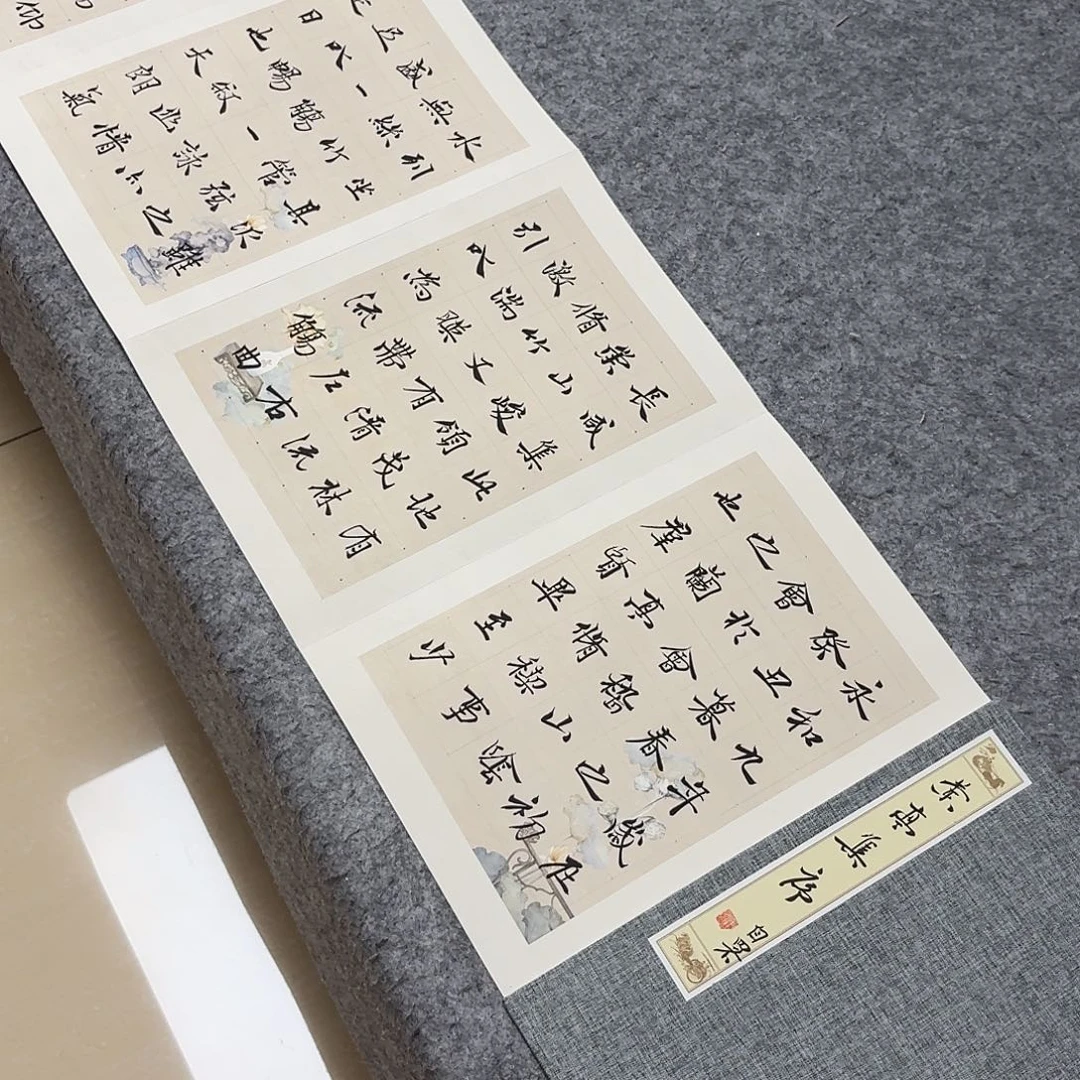 蘭亭集序
永和九年歲在
癸丑暮春之初
會於會稽山陰
之蘭亭脩禊事
也羣賢畢至少
長咸集此地有
崇山峻領茂林
脩竹又有清流
激湍映帶左右
引以為流觴曲
水列坐其次雖
無絲竹管弦之
盛一觴一詠亦
足以暢敘幽情
是日也天朗氣
仰